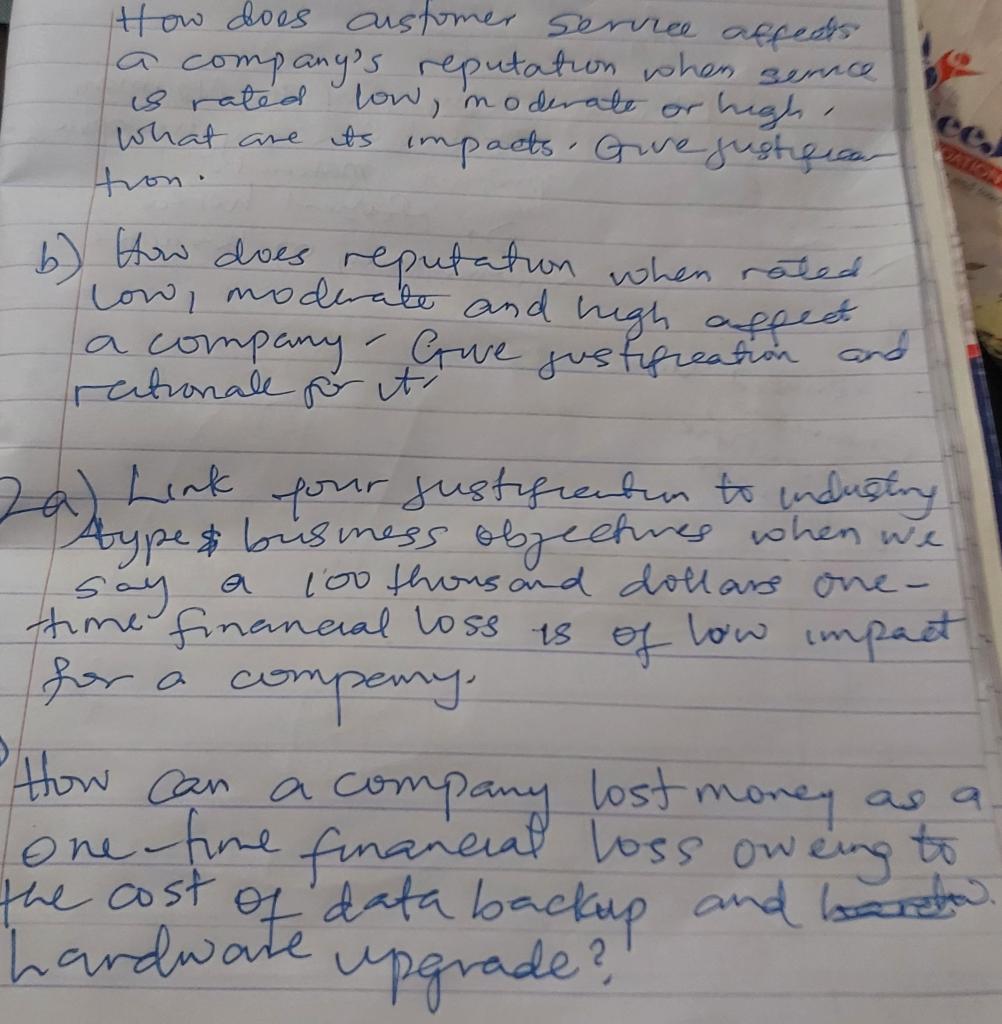 How does customer service affects
a company's reputation when service
is rated low, moderate or high.
What are its impacts. Give justifica
tion.
b) How does reputation when rated
low, moderate and high affect
a company. Give justification and
rationale for it.
2a) Link your justification to industry
type & business objectives when we
say a 100 thousand dollars one-
time financial loss is of low impact
for a company.
How can a company lost money as a
one-time financial loss oweing to
the cost of data backup and
hardware upgrade?